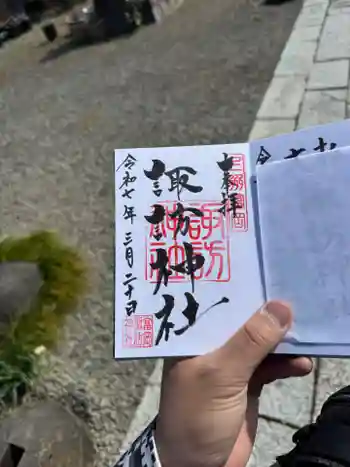 奉拝
諏訪神社
諏訪神社
令和七年三月二十日